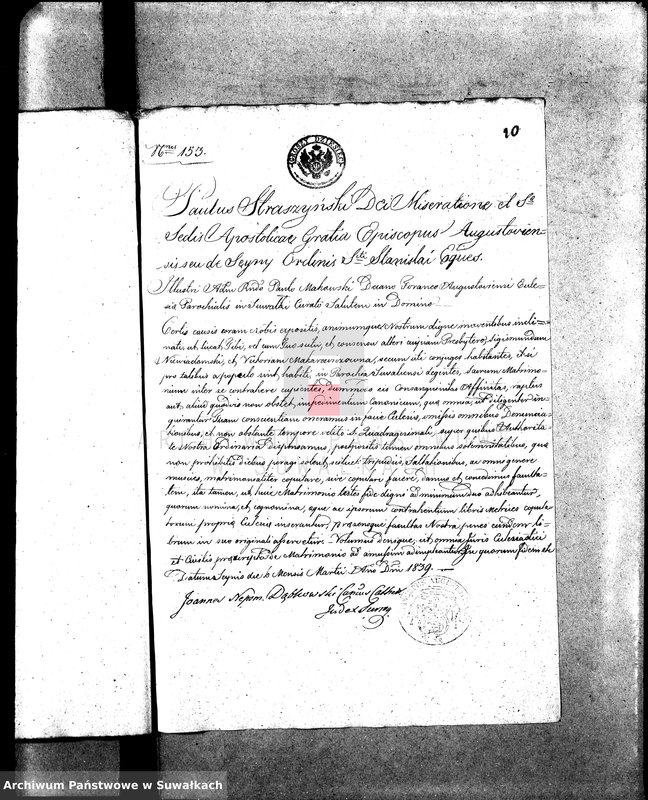 10
Nrus 153.
Paulus Straszyński Dei Miseratione et Stæ
Sedis Apostolicae Gratia Episcopus Augustovien-
sis seu de Seyny Ordinis Sti Stanislai Eques.
Illustri Adm Rndo Paulo Makowski Decano Foraneo Augustoviensi Eccle-
siæ Parochialis in Suwałki Curato Salutem in Domino
Certis causis coram Nobis expositis, animumque Nostrum digne moventibus incli-
nati, ut liceat Tibi, vel cum Tuo scitu, et consensu alteri cuipiam Presbytero, Sigismundum
Niewiadomski, et Victoriam Makarzewzowna, secum uti conjuges habitantes, et si
pro talibus a populo sint habiti, in Parochia Suwalensi degentes, sacrum Matrimo-
nium inter se contrahere cupientes, dummodo eis Consanguinitas Affinitas, raptus
aut aliud quodvis non obstet, impedimentum Canonicum, quæ omnia, ut diligenter in-
quirantur Tuam conscientiam oneramus in facie Ecclesiæ, omissis omnibus Denuncia-
tionibus, et non obstante tempore vetito Quadragesimali, super quibus Authorita-
te Nostra Ordinaria Dispensamus, postpositis tamen omnibus solemnitatibus, quæ
non prohibitis diebus peragi solent, scilicet tripudiis, Saltationibus, ac omni genere
musices, matrimonialiter copulare, sive copulare facere, damus et concedimus faculta-
tem, ita tamen, ut huic Matrimonio testes fide digni ad minimum duo adhibeantur,
quorum nomina, et cognomina, eque ac ipsorum contrahentium libris Metrices copula-
torum propriæ Ecclesiæ inserantur, præsensque facultas Nostra penes eundem li-
brum in suo originali asservetur. Volumus denique, ut omnia juris Ecclesiastici
et Civilis præscripta de Matrimonio ad amussim adimpleantur. In quorum fidem etc
Datum Seynis die 6 Mensis Martii Anno Dni 1839.
Joannes Nepom. Dąbkowski Canicus Cathed
Judex Surrog
Archiwum Państwowe w Suwałkach